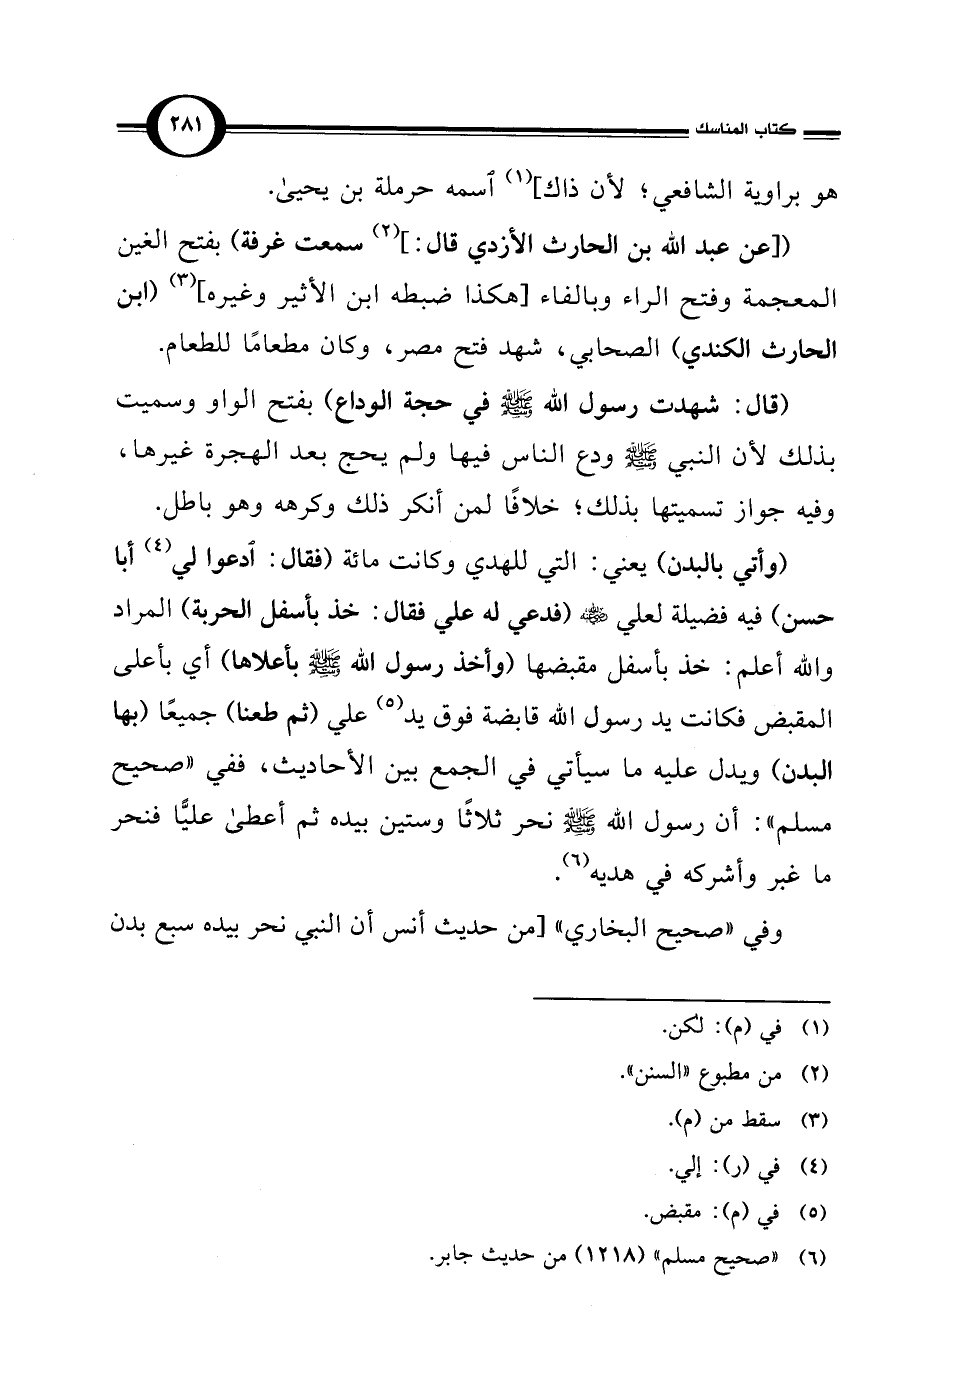 كتاب المناسك ٢٨١
هو براوية الشافعي؛ لأن ذاك](١) ٱسمه حرملة بن يحيىٰ.
([عن عبد الله بن الحارث الأزدي قال:](٢) سمعت غرفة) بفتح الغين
المعجمة وفتح الراء وبالفاء [هكذا ضبطه ابن الأثير وغيره](٣) (ابن
الحارث الكندي) الصحابي، شهد فتح مصر، وكان مطعامًا للطعام.
(قال: شهدت رسول الله ﷺ في حجة الوداع) بفتح الواو وسميت
بذلك لأن النبي ﷺ ودع الناس فيها ولم يحج بعد الهجرة غيرها،
وفيه جواز تسميتها بذلك؛ خلافًا لمن أنكر ذلك وكرهه وهو باطل.
(وأتي بالبدن) يعني: التي للهدي وكانت مائة (فقال: ٱدعوا لي(٤) أبا
حسن) فيه فضيلة لعلي رضي الله عنه (فدعي له علي فقال: خذ بأسفل الحربة) المراد
والله أعلم: خذ بأسفل مقبضها (وأخذ رسول الله ﷺ بأعلاها) أي بأعلى
المقبض فكانت يد رسول الله قابضة فوق يد(٥) علي (ثم طعنا) جميعًا (بها
البدن) ويدل عليه ما سيأتي في الجمع بين الأحاديث، ففي «صحيح
مسلم»: أن رسول الله ﷺ نحر ثلاثًا وستين بيده ثم أعطىٰ عليًّا فنحر
ما غبر وأشركه في هديه(٦).
وفي «صحيح البخاري» [من حديث أنس أن النبي نحر بيده سبع بدن
(١) في (م): لكن.
(٢) من مطبوع «السنن».
(٣) سقط من (م).
(٤) في (ر): إلي.
(٥) في (م): مقبض.
(٦) «صحيح مسلم» (١٢١٨) من حديث جابر.